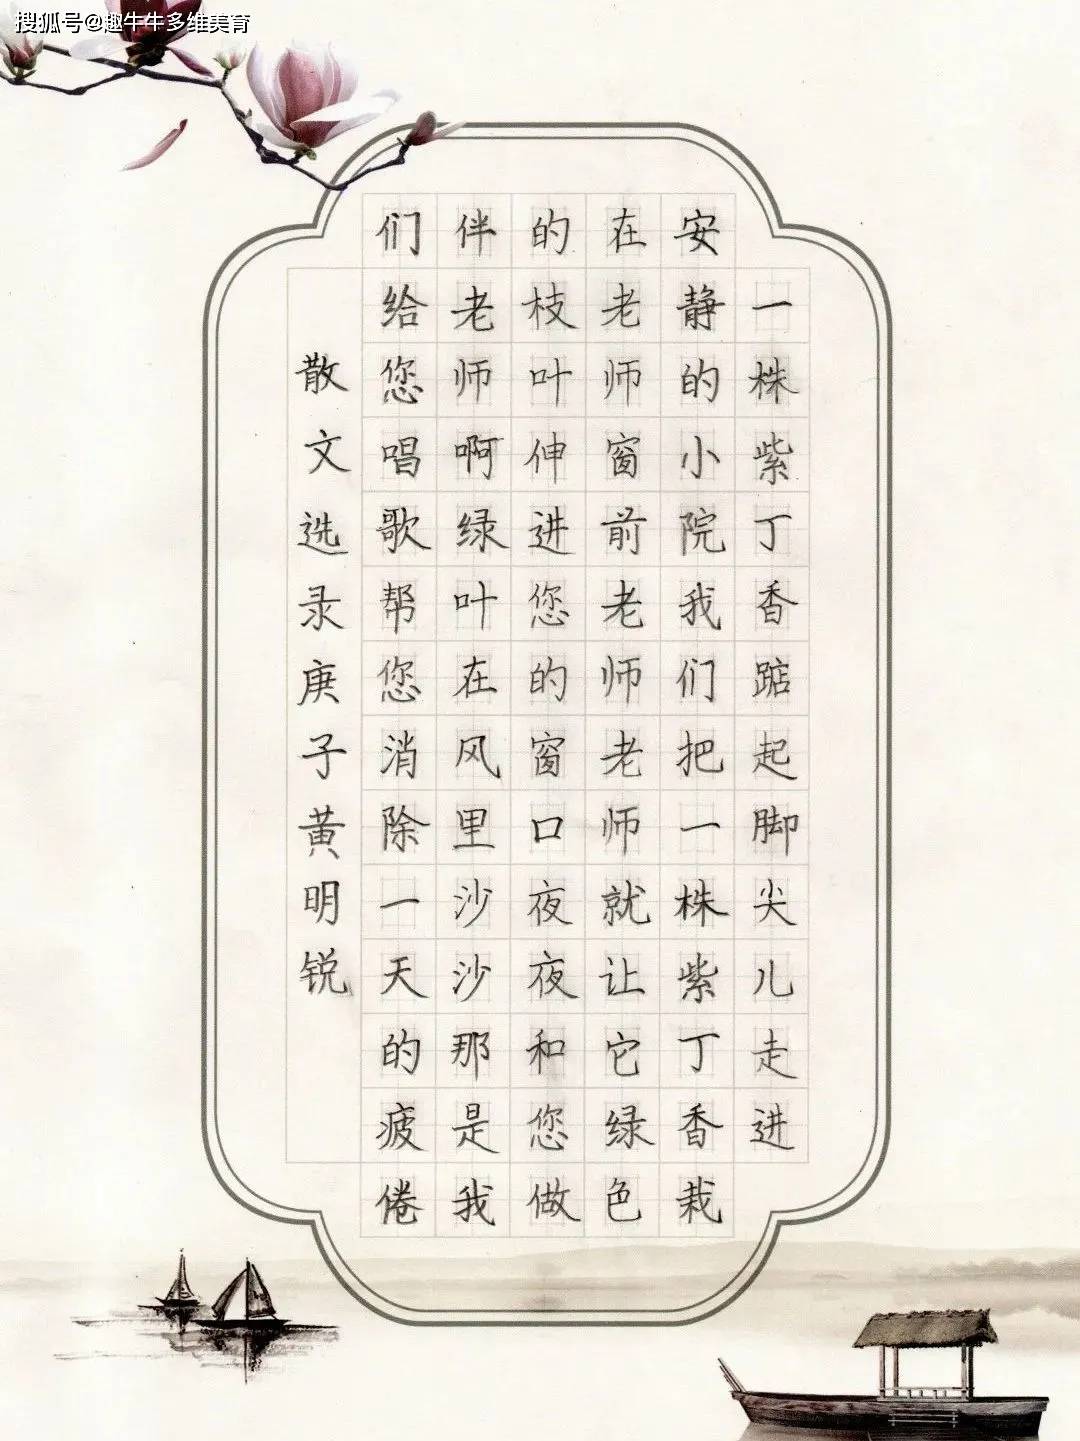 搜狐号@趣牛牛多维美育
一株紫丁香踮起脚尖儿走进
安静的小院我们把一株紫丁香栽
在老师窗前老师老师就让它绿色
的枝叶伸进您的窗口夜夜和您做
伴老师啊绿叶在风里沙沙那是我
们给您唱歌帮您消除一天的疲倦
散文选录庚子黄明锐